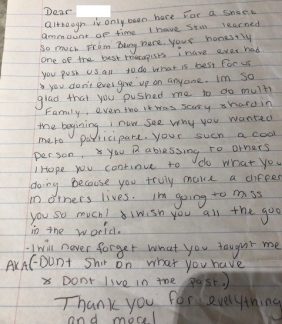 Dear
Although iv only been here for a short
ammount of time I have still learned
so much from being here. your honestly
one of the best therapists i have ever had
you push us all to do what is best for us
& you don't ever give up on anyone. Im so
glad that you pushed me to do multi
family. even tho it was scary & hard in
the begining i now see why you wanted
me to participate. your such a cool
person, & you R a blessing to others
I hope you continue to do what you
doing because you truly make a differ
in others lives. Im going to miss
you so much! & i wish you all the goo
in the world.
-I will never forget what you taught me
AKA (-Dont shit on what you have
& Dont live in the past.)
Thank you for everything
and more!